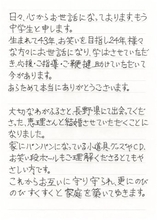 日々、心からお世話になっております もう
中学生と申します。
生まれて43年、お笑いを目指し24年、様々
な方々にお世話になり、学ばさせていただ
き、応援・ご指導・ご鞭撻、助けていただいて
今があります。
あらためて本当にありがとうございます。
大切なわがふるさと、長野県にて出会ってくださっ
た、恵理さんと結婚させていただくこと
になりました。
家にパンパンになっている小道具、グニスやCD、
お笑い段ボールもご理解くださるとてもや
さしい方です。
これからお互いに守り守られ、更にのび
のびすくすくと家庭を築いてゆきます。